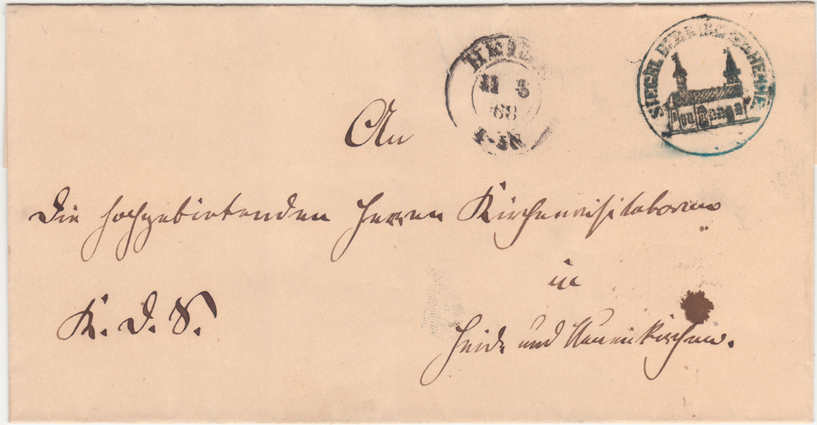 HEIDE
11 5
68
SIEGEL DER KIRCHE
An
Die hochgebietenden Herren Kirchenvisitatorien
in
K. D. S.
Heide und Neuenkirchen.